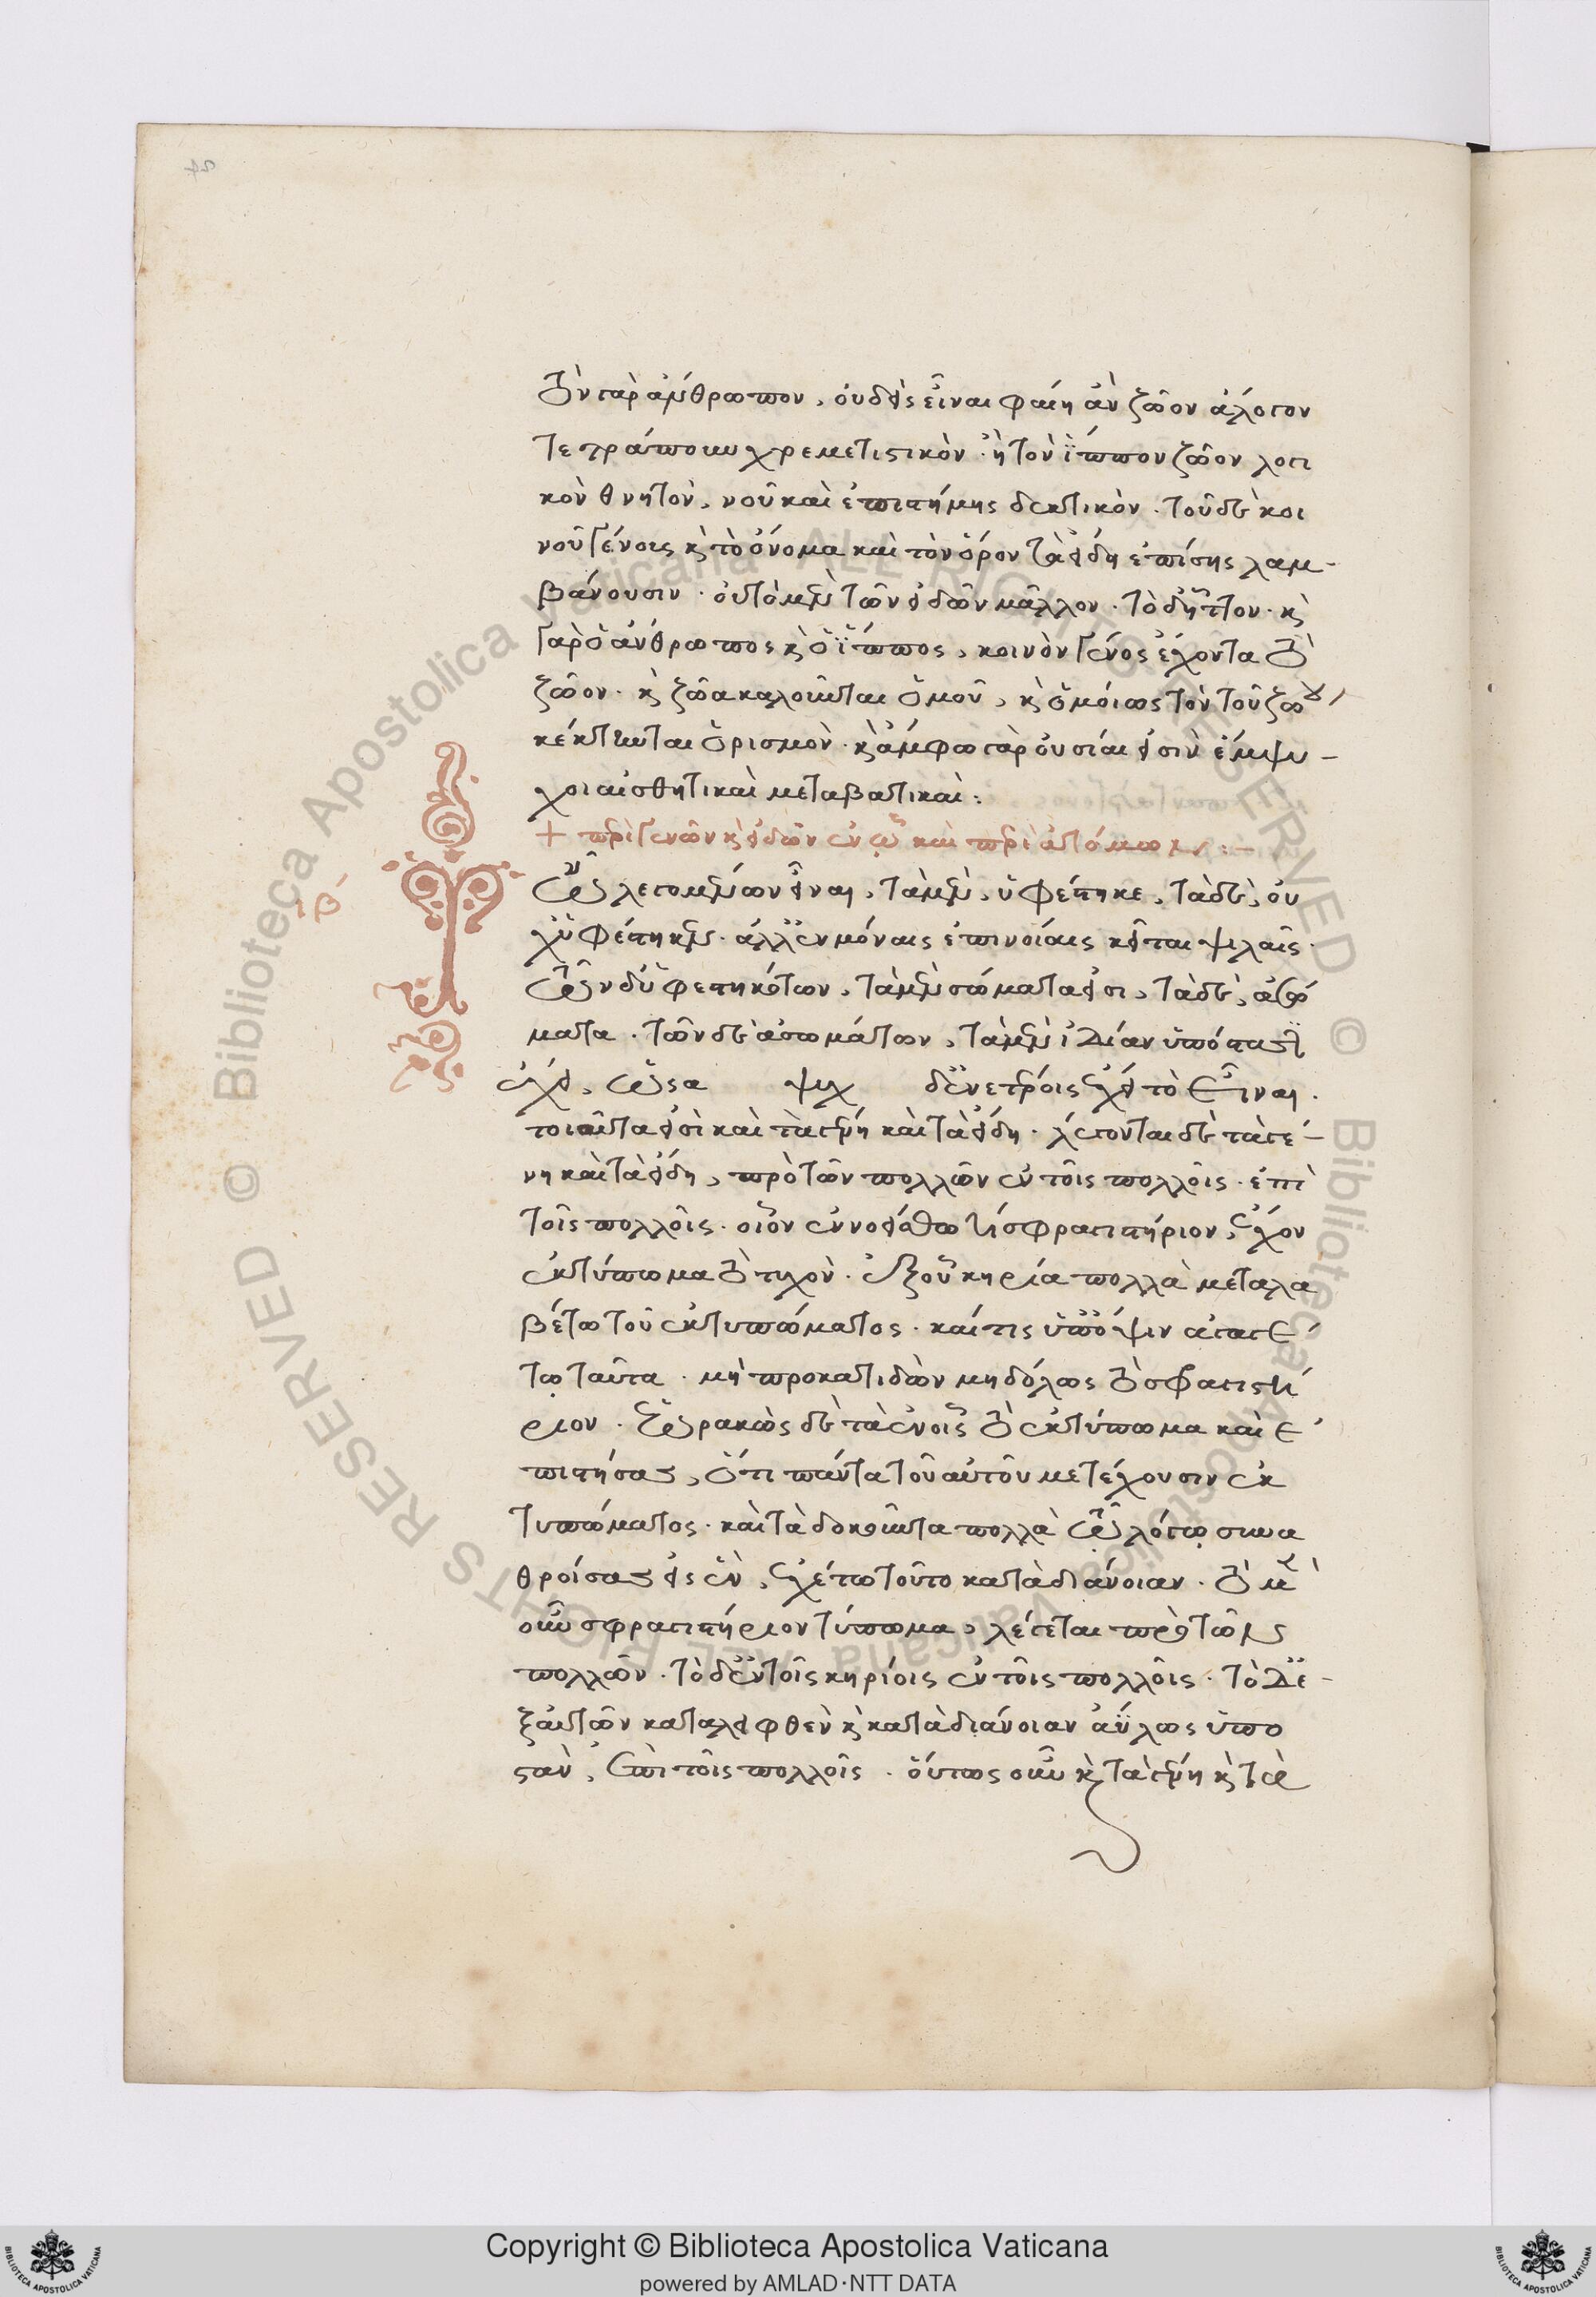 τὸν γὰρ ἄνθρωπον, οὐδεὶς εἶναι φαίη ἂν ζῶον ἄλογον
τετράπουν χρεμετιστικὸν· ἢ τὸν ἵππον ζῶον λογι
κὸν θνητὸν, νοῦ καὶ ἐπιστήμης δεκτικὸν· τοῦ δὲ κοι
νοῦ γένους κ̀ τὸ ὄνομα καὶ τὸν ὅρον τὰ εἴδη ἐπίσης λαμ-
βάνουσιν· οὐ τὸ μὲν τῶν εἰδῶν μᾶλλον· τὸ δ' ἧττον· κ̀
γὰρ ὁ ἄνθρωπος κ̀ ὁ ἵππος, κοινὸν γένος ἔχοντα τὸ
ζῶον· κ̀ ζῶα καλοῦνται ὁμοῦ, κ̀ ὁμοίως τὸν τοῦ ζώου
κέκτηνται ὁρισμὸν· κ̀ ἄμφω γὰρ οὐσίαι εἰσὶν ἔμψυ-
χοι αἰσθητικαὶ μεταβατικαί:
+ περὶ γενῶν κ̀ εἰδῶν ἐν ᾧ καὶ περὶ ἀτόμων:-
β
Τῶν λεγομένων εἶναι, τὰ μὲν, ὑφέστηκε, τὰ δὲ, οὐ
χ' ὑφέστηκεν· ἀλλ' ἐν μόναις ἐπινοίαις κεῖται ψιλαῖς·
τῶν δ' ὑφεστηκότων, τὰ μὲν σώματα εἰσι, τὰ δὲ, ἀσώ
ματα· τῶν δὲ ἀσωμάτων, τὰ μὲν ἰδίαν ὑπόστασιν
ἔχει, ψυχ δ' ἐν ἑτέροις ἔχει τὸ εἶναι·
τοιαῦτα εἰσὶ καὶ τὰ γένη καὶ τὰ εἴδη· λέγονται δὲ τὰ γέ-
νη καὶ τὰ εἴδη, πρὸ τῶν πολλῶν ἐν τοῖς πολλοῖς· ἐπὶ
τοῖς πολλοῖς· οἷον ἐννοείσθω τί σφραγιστήριον, ἔχον
ἐκτύπωμα τὸ τυχὸν· ἐξ οὗ κηρία πολλὰ μεταλα
βέτω τοῦ ἐκτυπώματος· καί τις ὑπ' ὄψιν ἀγαγέ
τω ταῦτα· μὴ προκατιδὼν μηδόλως τὸ σφραγιστή
ριον· ἑωρακὼς δὲ τὰ ἐν οἷς τὸ ἐκτύπωμα καὶ ἐ
πιστήσας, ὅτι πάντα τοῦ αὐτοῦ μετέχουσιν ἐκ
τυπώματος· καὶ τὰ δοκοῦντα πολλὰ τῷ λόγῳ συνα
θροίσας εἰς ἓν, ἐχέτω τοῦτο κατὰ διάνοιαν· τὸ μὲν
οὖν σφραγιστήριον τύπωμα, λέγεται πρὸ τῶν
πολλῶν· τὸ δ' ἐν τοῖς κηρίοις ἐν τοῖς πολλοῖς· τὸ δὲ ἐ-
ξ αὐτῶν καταληφθὲν κ̀ κατὰ διάνοιαν ἀΰλως ὑπο
στὰν, ἐπὶ τοῖς πολλοῖς· οὕτως οὖν κ̀ τὰ γένη κ̀ τὰ
Copyright © Biblioteca Apostolica Vaticana
powered by AMLAD·NTT DATA